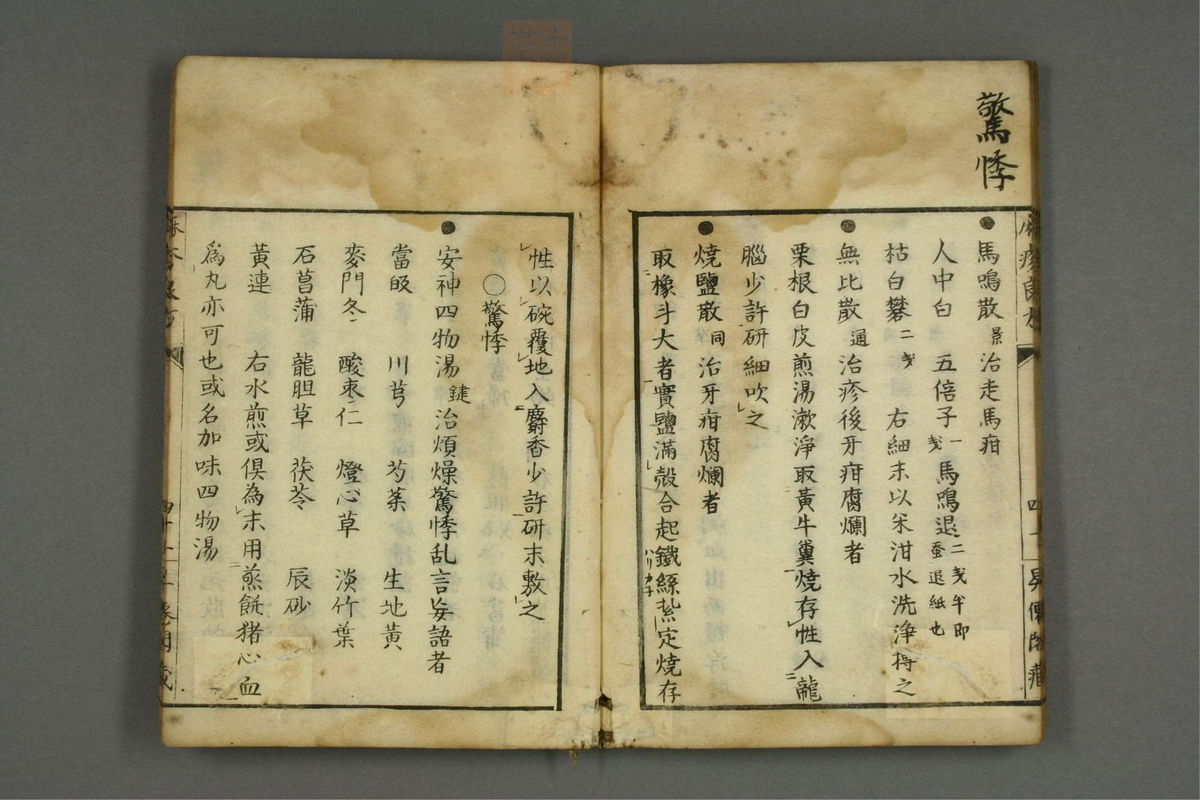 驚悸
馬鳴散景治走馬疳
人中白 五倍子一戔 馬鳴退二戔半即蚕退紙也
枯白礬二戔 右細末以米泔水洗淨搽之
無比散通治疹後牙疳腐爛者
栗根白皮煎湯漱淨取黃牛糞燒存性入龍
腦少許研細吹之
燒鹽散同治牙疳腐爛者
取橡斗大者實鹽滿殼合起鐵絲紮定燒存
ハリカネ
性以碗覆地入麝香少許研末敷之
〇驚悸
安神四物湯鍵治煩燥驚悸乱言妄語者
當皈 川芎 芍薬 生地黃
麥門冬 酸枣仁 燈心草 淡竹葉
石菖蒲 龍胆草 茯苓 辰砂
黃連 右水煎或倶為末用蒸餅猪心血
爲丸亦可也或名加味四物湯